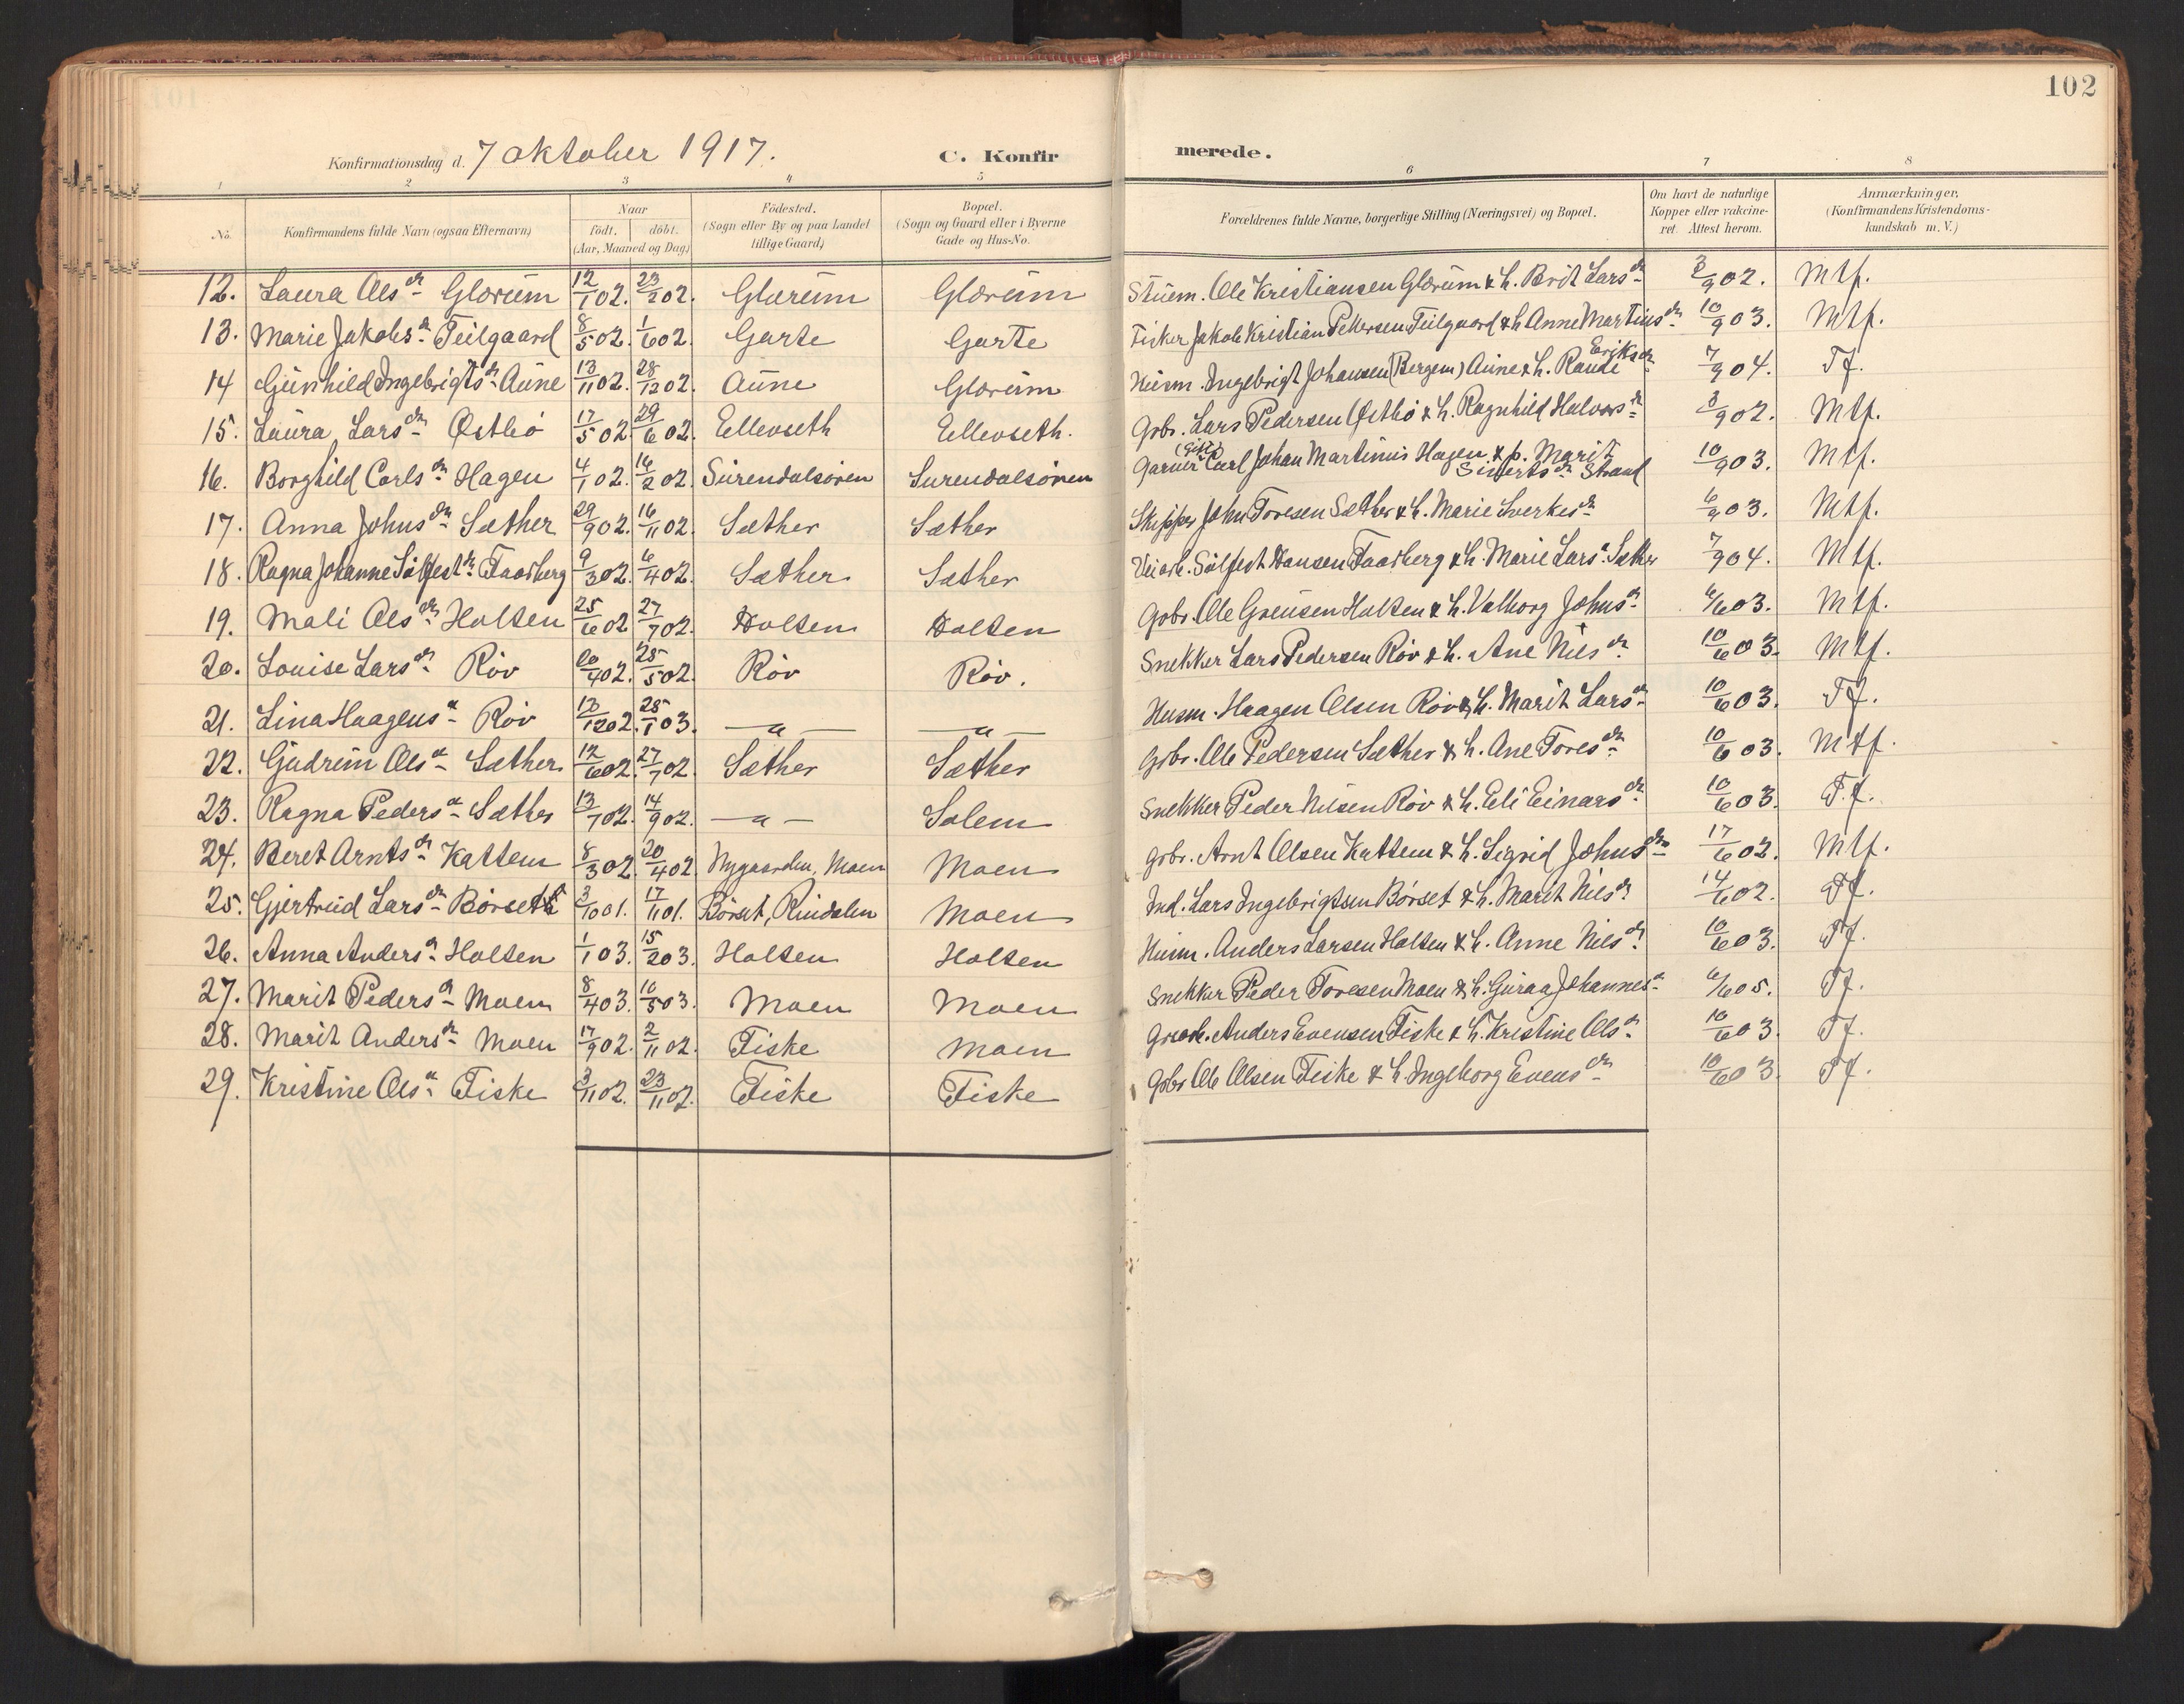 102
Konfirmationsdag d. 7 oktober 1917. C. Konfir merede.
1 2 3 4 5 6 7 8
No. Konfirmandens fulde Navn (ogsaa Efternavn) Naar født. døbt. (Aar, Maaned og Dag) Fødested. (Sogn eller By og paa Landet tillige Gaard) Bopæl. (Sogn og Gaard eller i Byerne Gade og Hus-No. Forældrenes fulde Navne, borgerlige Stilling (Næringsvei) og Bopæl. Om havt de naturlige Kopper eller vakcineret. Attest herom. Anmærkninger, (Konfirmandens Kristendomskundskab m. V.)
12. Laura Olsdr Glærum 12/1 02. 23/2 02. Glærum Glærum Stuem. Ole Kristiansen Glærum & h. Brit Larsdr 3/9 02. Mtf.
13. Marie Jakobsdr Teilgaard 8/5 02. 1/6 02. Garte Garte Fisker Jakob Kristian Pettersen Teilgaard & h Anne Martinsdr 10/9 03. Mtf.
14 Gunhild Ingebrigtsdr Aune 13/11 02. 28/12 02. Aune Glærum Husm. Ingebrigt Johansen (Bergem) Aune & h. Randi Eriksdr 7/9 04. Tf.
15. Laura Larsdr Østbø 17/5 02. 29/6 02. Ellevseth Ellevseth. Gbr. Lars Pedersen Østbø & h. Ragnhild Halvorsdr 3/9 02. Mtf.
16. Borghild Carlsdr Hagen 4/1 02. 16/2 02. Surendalsøren Surendalsøren Garver (gift) Carl Johan Martinius Hagen & p. Marit Sivertsdr Strand 10/9 03. Mtf.
17. Anna Johnsdr Sæther 29/9 02. 16/11 02. Sæther Sæther Skipper John Toresen Sæther & h. Marie Sverkesdr 6/9 03. Mtf.
18. Ragna Johanne Sølfestdr Faarberg 9/3 02. 6/4 02. Sæther Sæther Veiarb. Sølfest Hansen Faarberg & h. Marie Larsd. Sæther 7/9 04. Mtf.
19. Mali Olsdr Holten 25/6 02 27/7 02. Holten Holten Gbr. Ole Greusen Holten & h. Valborg Johnsdr 6/6 03. Mtf.
20. Louise Larsdr Røv 20/4 02. 25/5 02. Røv Røv. Snekker Lars Pedersen Røv & h. Ane Nilsdr 10/6 03. Mtf.
21. Lina Haagensd Røv 13/12 02. 25/1 03. — " — — " — Husm. Haagen Olsen Røv & h. Marit Larsdr 10/6 03. Tf.
22. Gudrun Olsd Sæther 12/6 02. 27/7 02. Sæther Sæther Gbr. Ole Pedersen Sæther & h. Ane Toresdr 10/6 03. Mtf.
23. Ragna Pedersd Sæther 13/7 02. 14/9 02. — " — Solem Snekker Peder Nilsen Røv & h. Eli Einarsdr 10/6 03. T.f.
24. Beret Arntsdr Kattem 8/3 02. 20/4 02 Nygaarden, Moen Moen Gbr. Arnt Olsen Kattem & h. Sigrid Johnsdr 17/6 02. Mtf.
25. Gjertrud Larsdr Børset 3/10 01. 17/11 01. Børset, Rindalen Moen Ind. Lars Ingebrigtsen Børset & h. Marit Nilsdr 14/6 02. Tf.
26. Anna Andersdr Holten 1/1 03. 15/2 03. Holten Holten Husm. Anders Larsen Holten & h. Anne Nilsdr 10/6 03. Tf.
27. Marit Pedersdr Moen 8/4 03. 10/5 03. Moen Moen Snekker Peder Toresen Moen & h. Guraa Johannesd 6/6 05. Tf.
28. Marit Andersdr Moen 17/9 02. 2/11 02. Fiske Moen Anders Evensen Fiske & h. Kristine Olsdr 10/6 03. Tf.
29. Kristine Olsd Fiske 3/11 02. 23/11 02. Fiske Fiske Gbr. Ole Olsen Fiske & h. Ingeborg Evensdr 10/6 03. Tf.